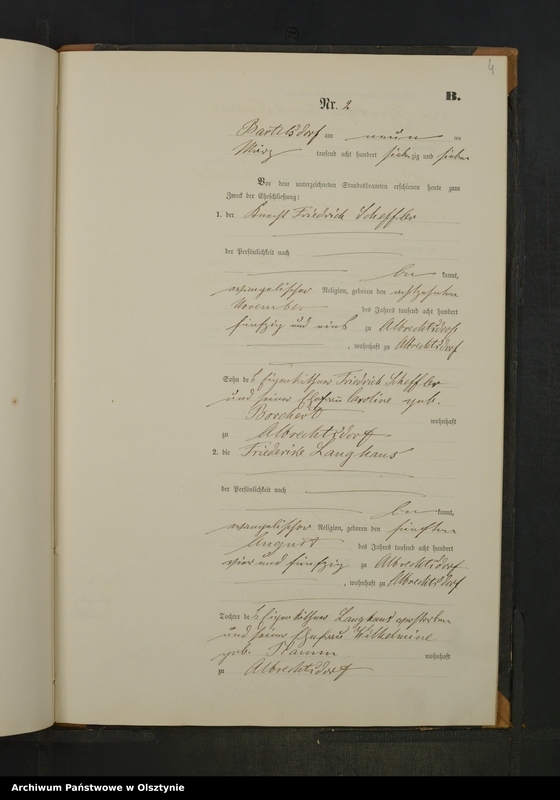 4
B.
Nr. 2
Bartelsdorf am neun ten
März tausend acht hundert siebenzig und sieben
Vor dem unterzeichneten Standesbeamten erschienen heute zum
Zweck der Eheschließung:
1. der Knecht Friedrich Scheffler
der Persönlichkeit nach
be kannt,
evangelischer Religion, geboren den achtzehnten
November des Jahres tausend acht hundert
fünfzig und eins zu Albrechtsdorf
, wohnhaft zu Albrechtsdorf
Sohn des Eigenkäthner Friedrich Scheffler
und seiner Ehefrau Caroline geb.
Borchert wohnhaft
zu Albrechtsdorf
2. die Friederike Langhans
der Persönlichkeit nach
be kannt,
evangelischer Religion, geboren den fünften
August des Jahres tausend acht hundert
vier und fünfzig zu Albrechtsdorf
, wohnhaft zu Albrechtsdorf
Tochter des Eigenkäthner Langhans verstorben
und seiner Ehefrau Wilhelmine
geb. Plamm wohnhaft
zu Albrechtsdorf
Archiwum Państwowe w Olsztynie